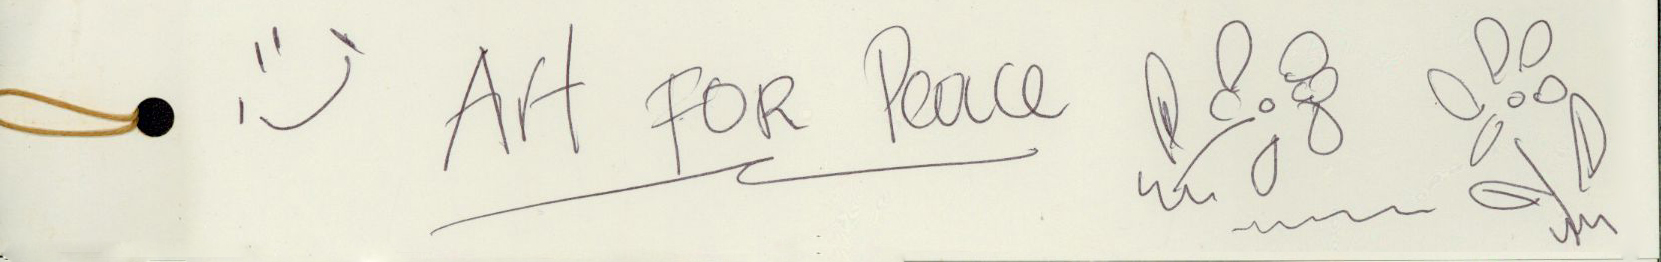 Art FOR Peace